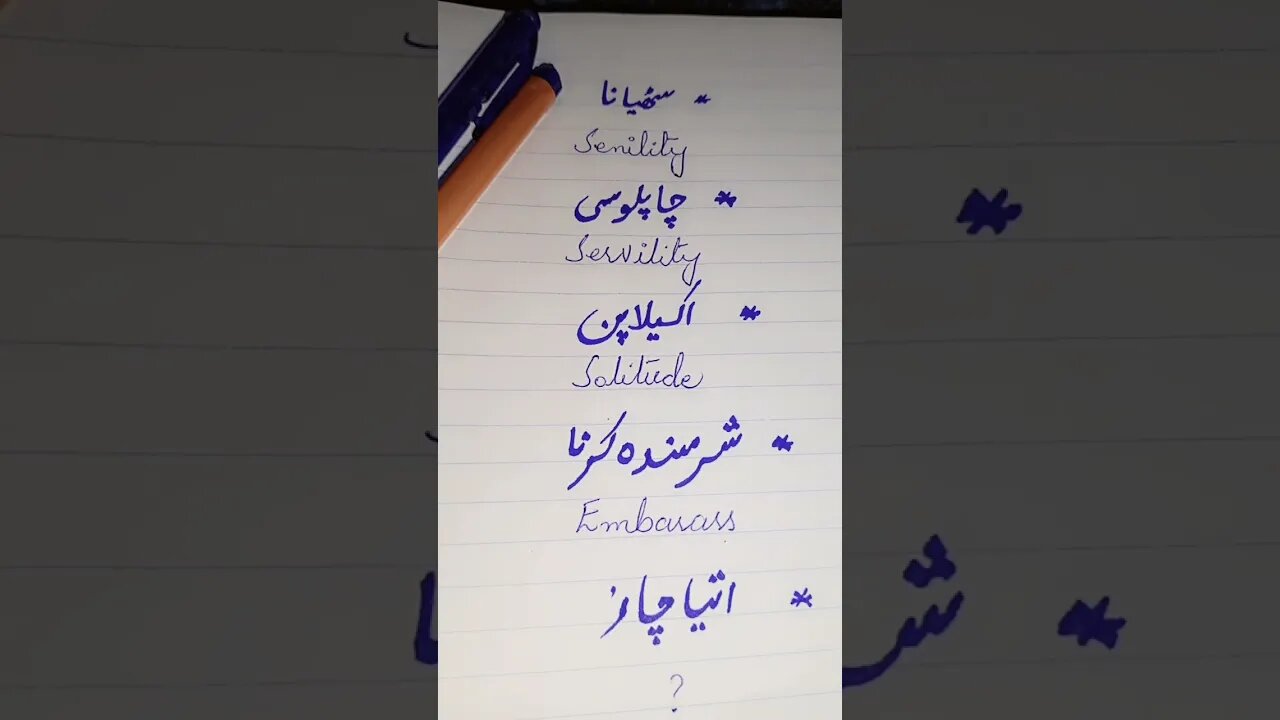 * سٹھیانا
Senility
* چاپلوسی
Servility
* اکیلاپن
Solitude
* شرمندہ کرنا
Embarass
* اتیاچار
?